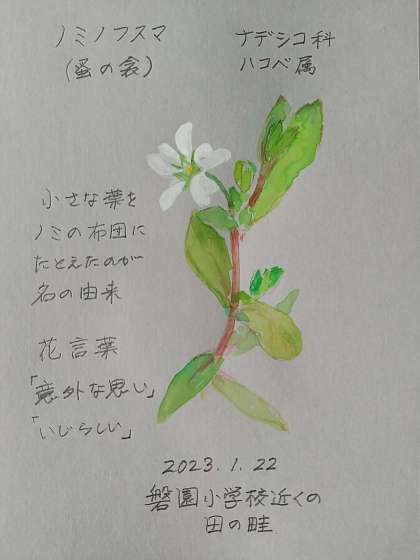 ノミノフスマ
(蚤の衾)
ナデシコ科
ハコベ属
小さな葉を
ノミの布団に
たとえたのが
名の由来
花言葉
「意外な思い」
「いじらしい」
2023.1.22
磐園小学校近くの
田の畦